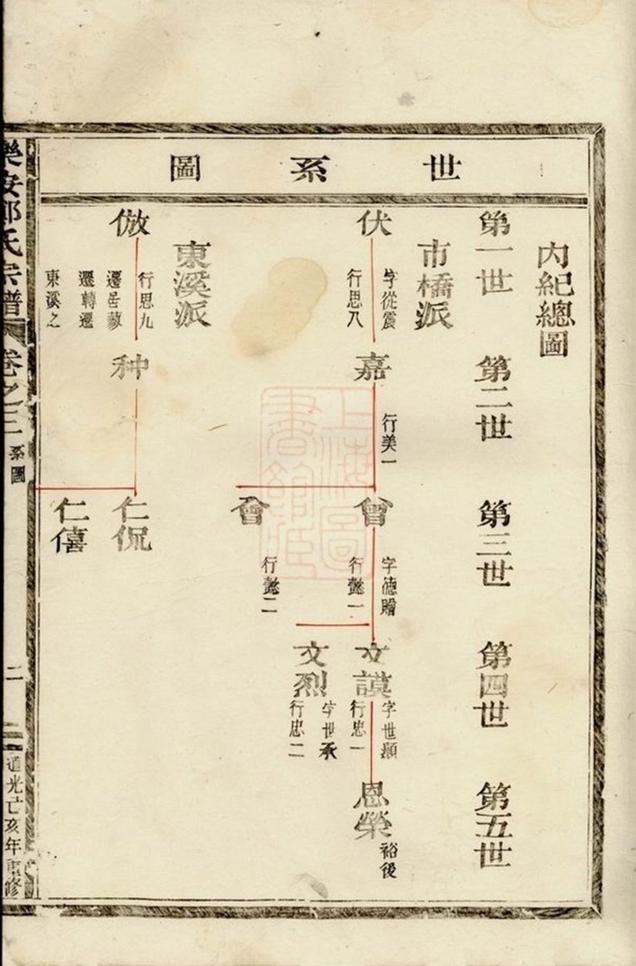 世系圖
內紀總圖
第一世
第二世
第三世
第四世
第五世
市橋派
伏
字從震
行思八
嘉
行美一
曾
字德贈
行懿一
文謨
字世顯
行忠一
恩榮
裕後
文烈
字世承
行忠二
會
行懿二
東溪派
倣
行思九
遷岳蓼
遷轉遷
東溪之
种
仁侃
仁僖
氏宗譜
卷之二
系圖
二
道光亥年重修
上海圖書館藏